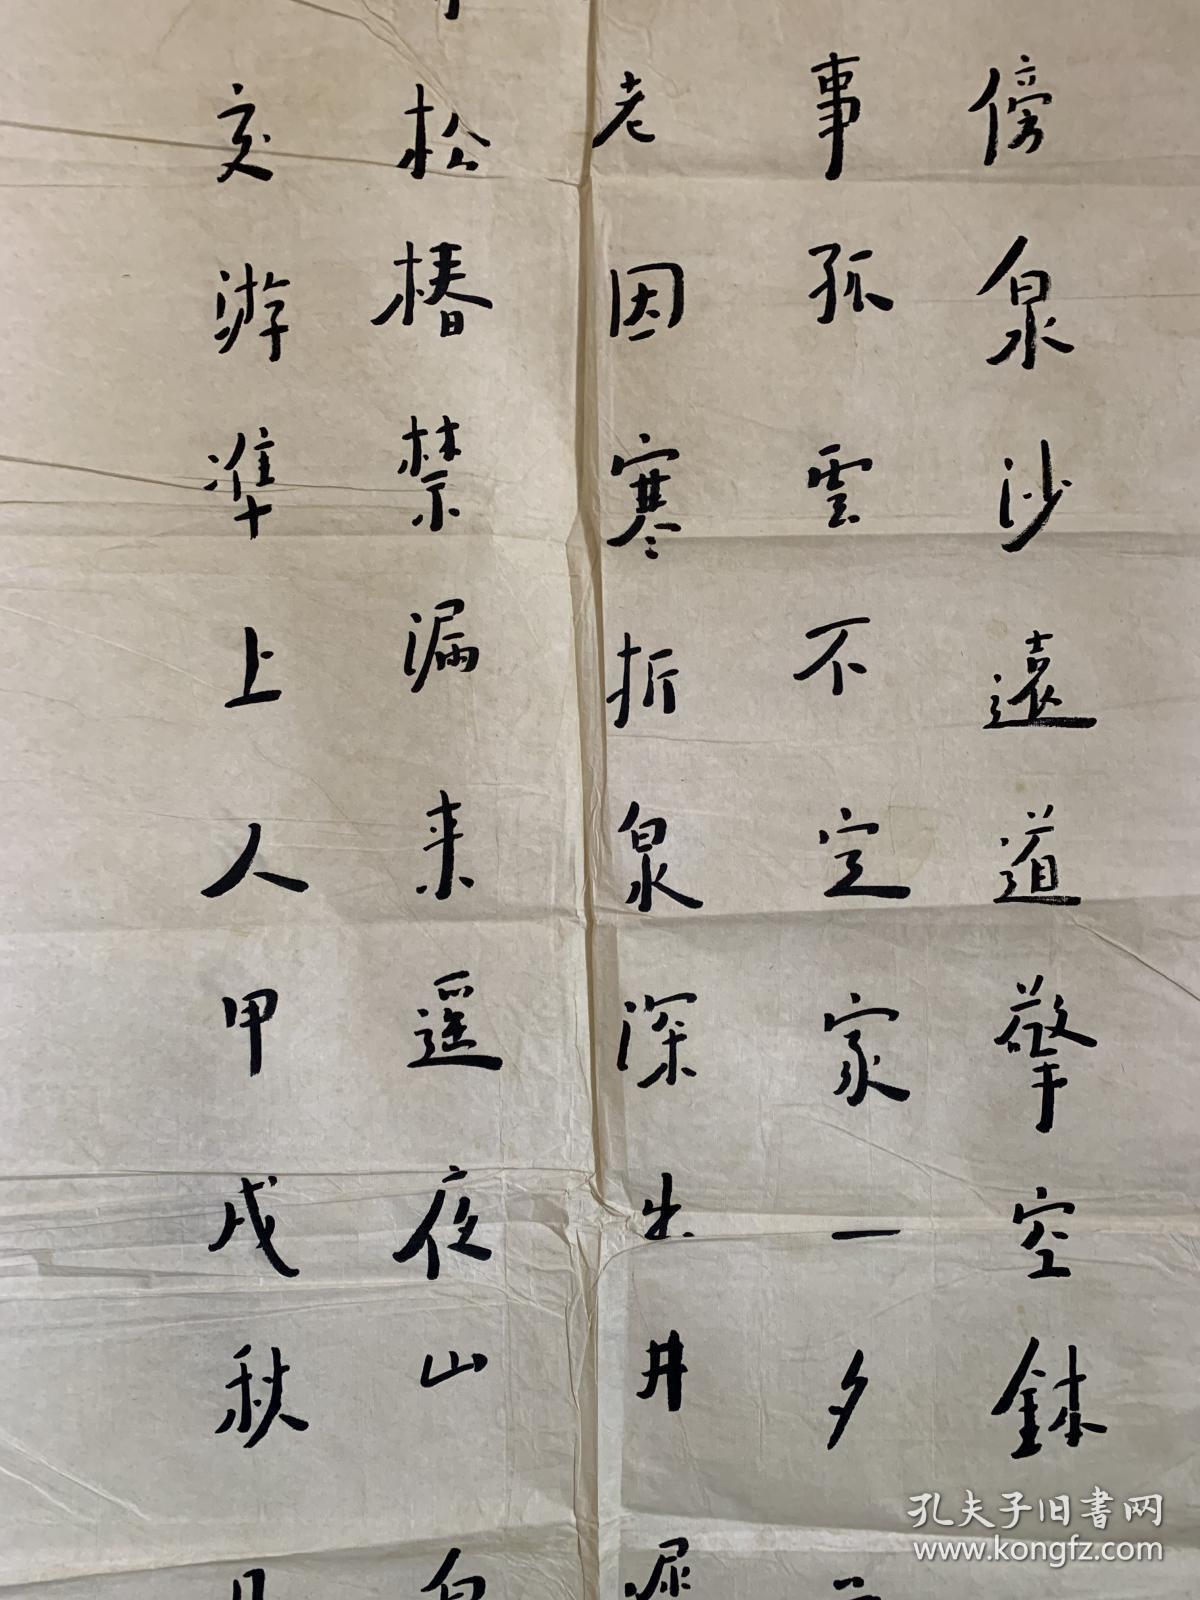 傍泉沙遠道擎空鉢
事孤雲不定家一夕
老因寒折泉深出井
松樁禁漏来遥夜山
交游準上人甲戌秋
孔夫子旧书网
www.kongfz.com